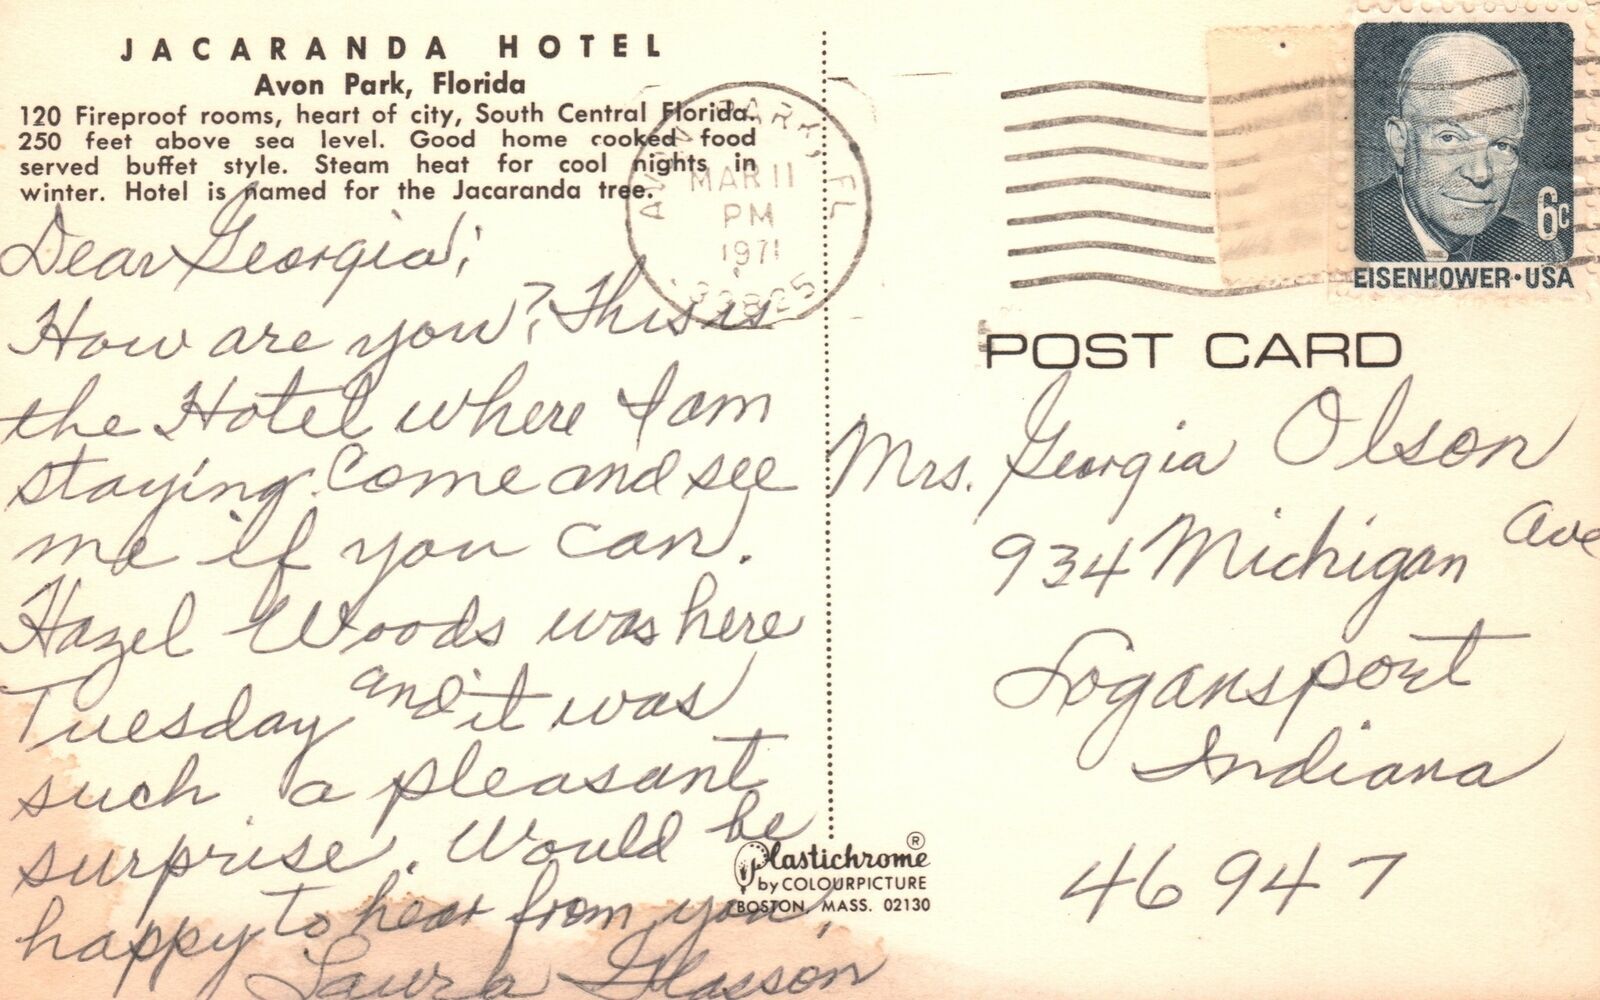 JACARANDA HOTEL
Avon Park, Florida
120 Fireproof rooms, heart of city, South Central Florida.
250 feet above sea level. Good home cooked food
served buffet style. Steam heat for cool nights in
winter. Hotel is named for the Jacaranda tree.
Dear Georgia;
How are you? This is
the Hotel where I am
staying. Come and see
me if you can.
Hazel Woods was here
Tuesday and it was
such a pleasant
surprise. Would be
happy to hear from you.
Laura Glasson
AVON PARK, FL
MAR 11
PM
1971
33825
6c
EISENHOWER·USA
POST CARD
Mrs. Georgia Olson
934 Michigan Ave
Logansport
Indiana
46947
Plastichrome®
by COLOURPICTURE
BOSTON, MASS. 02130